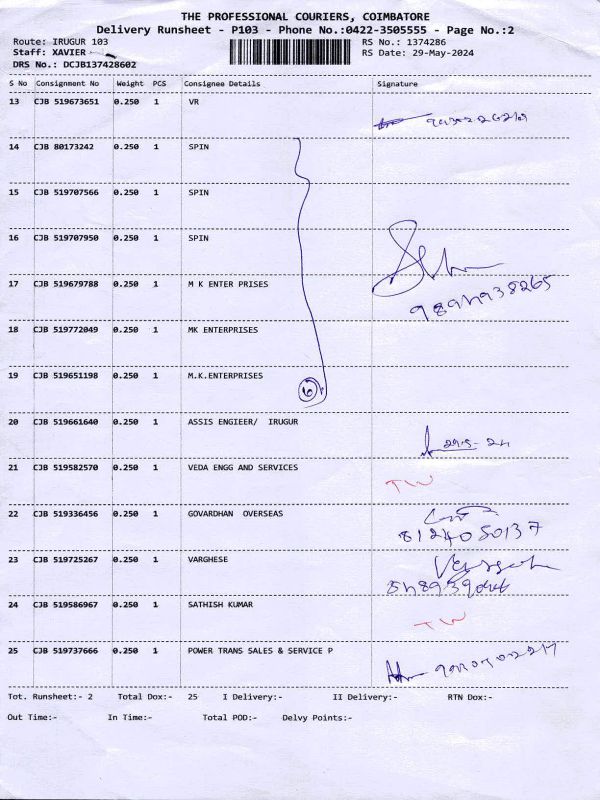 THE PROFESSIONAL COURIERS, COIMBATORE
Delivery Runsheet - P103 - Phone No.:0422-3505555 - Page No.:2
Route: IRUGUR 103 RS No.: 1374286
Staff: XAVIER RS Date: 29-May-2024
DRS No.: DCJB137428602
S No Consignment No Weight PCS Consignee Details Signature
13 CJB 519673651 0.250 1 VR
14 CJB 80173242 0.250 1 SPIN
15 CJB 519707566 0.250 1 SPIN
16 CJB 519707950 0.250 1 SPIN
17 CJB 519679788 0.250 1 M K ENTER PRISES
18 CJB 519772049 0.250 1 MK ENTERPRISES
19 CJB 519651198 0.250 1 M.K.ENTERPRISES
6
20 CJB 519661640 0.250 1 ASSIS ENGIEER/ IRUGUR
21 CJB 519582570 0.250 1 VEDA ENGG AND SERVICES TW
22 CJB 519336456 0.250 1 GOVARDHAN OVERSEAS
8124050137
23 CJB 519725267 0.250 1 VARGHESE
24 CJB 519586967 0.250 1 SATHISH KUMAR TW
25 CJB 519737666 0.250 1 POWER TRANS SALES & SERVICE P
Tot. Runsheet:- 2 Total Dox:- 25 I Delivery:- II Delivery:- RTN Dox:-
Out Time:- In Time:- Total POD:- Delvy Points:-